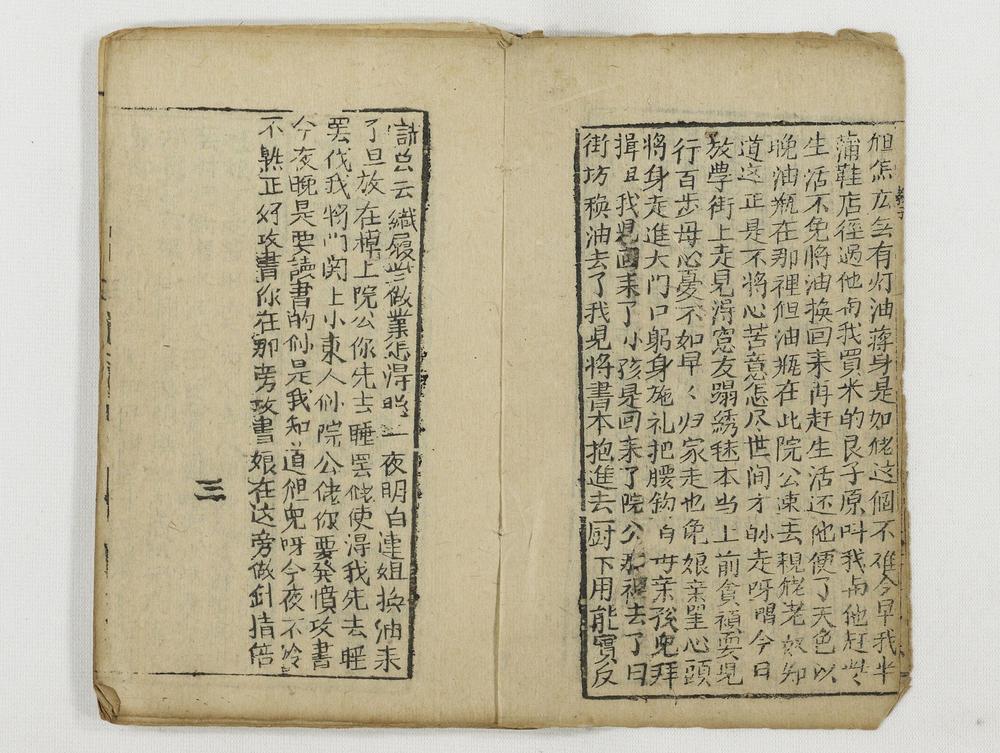 怎広無有灯油蒋身是如佬这個不难今早我半
蒲鞋店徑過他与我買米的艮子原叫我与他赶
生活不免将油换回来再赶生活还他便了天色以
晚油瓶在那裡但油瓶在此院公来去親佬老奴知
道这正是不将心苦意怎尽世间才的走呀唱今日
放學街上走見得窓友蹋綉毬本当上前貪頑耍見
行百步母心憂不如早〻归家走也免娘亲罣心頭
将身走進大门口躬身施礼把腰钩白母亲孩兒拜
揖旦我見回来了小孩是回来了院公那裡去了曰
街坊换油去了我見将書本抱進去厨下用能實反
云織履 做業怎得 一夜明白連姐换油来
了旦放在棹上院公你先去睡罢佬使得我先去睡
罢伐我将门関上小東人們院公佬你要発憤攻書
今夜晚是要読書的们是我知道旦兒呀今夜不冷
不熱正好攻書你在那旁攻書娘在这旁做針指倍
三